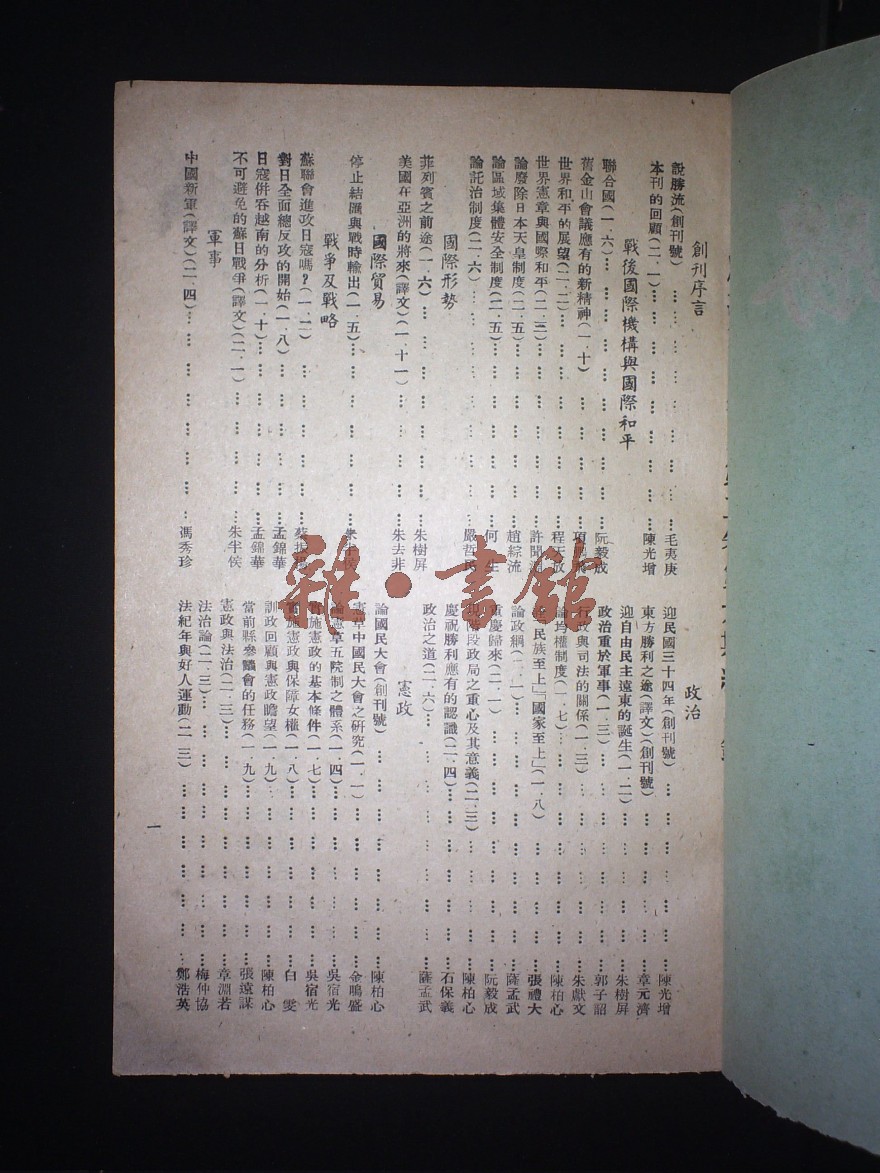 創刊序言
說勝流(創刊號)……毛夷庚
本刊的回顧(二.一)……陳光增
戰後國際機構與國際和平
聯合國(一.六)……阮毅成
舊金山會議應有的新精神(一.十)
世界和平的展望(二.二)……程天放
世界憲章與國際和平(二.三)……許聞淵
論廢除日本天皇制度(二.五)……趙綜流
論區域集體安全制度(二.五)……何生
論託治制度(二.六)……嚴哲民
國際形勢
菲列賓之前途(一.六)……朱樹屏
美國在亞洲的將來(譯文)(一.十一)……朱去非
國際貿易
停止結匯與戰時輸出(一.五)……朱半俟
戰爭及戰略
蘇聯會進攻日寇嗎?(一.二)
對日全面總反攻的開始(一.八)……孟錦華
日寇併吞越南的分析(一.十)……孟錦華
不可避免的蘇日戰爭(譯文)(二.一)……朱半俟
軍事
中國新軍(譯文)(二.四)……馮秀珍
政治
迎民國三十四年(創刊號)……陳光增
東方勝利之途(譯文)(創刊號)……章元濟
迎自由民主遠東的誕生(一.二)……朱樹屏
政治重於軍事(一.三)……郭子韶
行政與司法的關係(一.三)……朱獻文
論均權制度(一.七)……陳柏心
「民族至上」「國家至上」(一.八)……張禮大
論政綱(二.一)……薩孟武
重慶歸來(二.一)……阮毅成
現階段政局之重心及其意義(二.三)……陳柏心
慶祝勝利應有的認識(二.四)……石保義
政治之道(二.六)……薩孟武
憲政
論國民大會(創刊號)……陳柏心
憲草中國民大會之研究(一.一)……金鳴盛
論憲草五院制之體系(一.四)……吳宿光
實施憲政的基本條件(一.七)……吳宿光
實施憲政與保障女權(一.八)……白雯
訓政回顧與憲政瞻望(一.九)……陳柏心
當前縣參議會的任務(一.九)……張遠謀
憲政與法治(二.三)……章淵若
法治論(二.三)……梅仲協
法紀年與好人運動(二.三)……鄭浩英
一
雜·書館